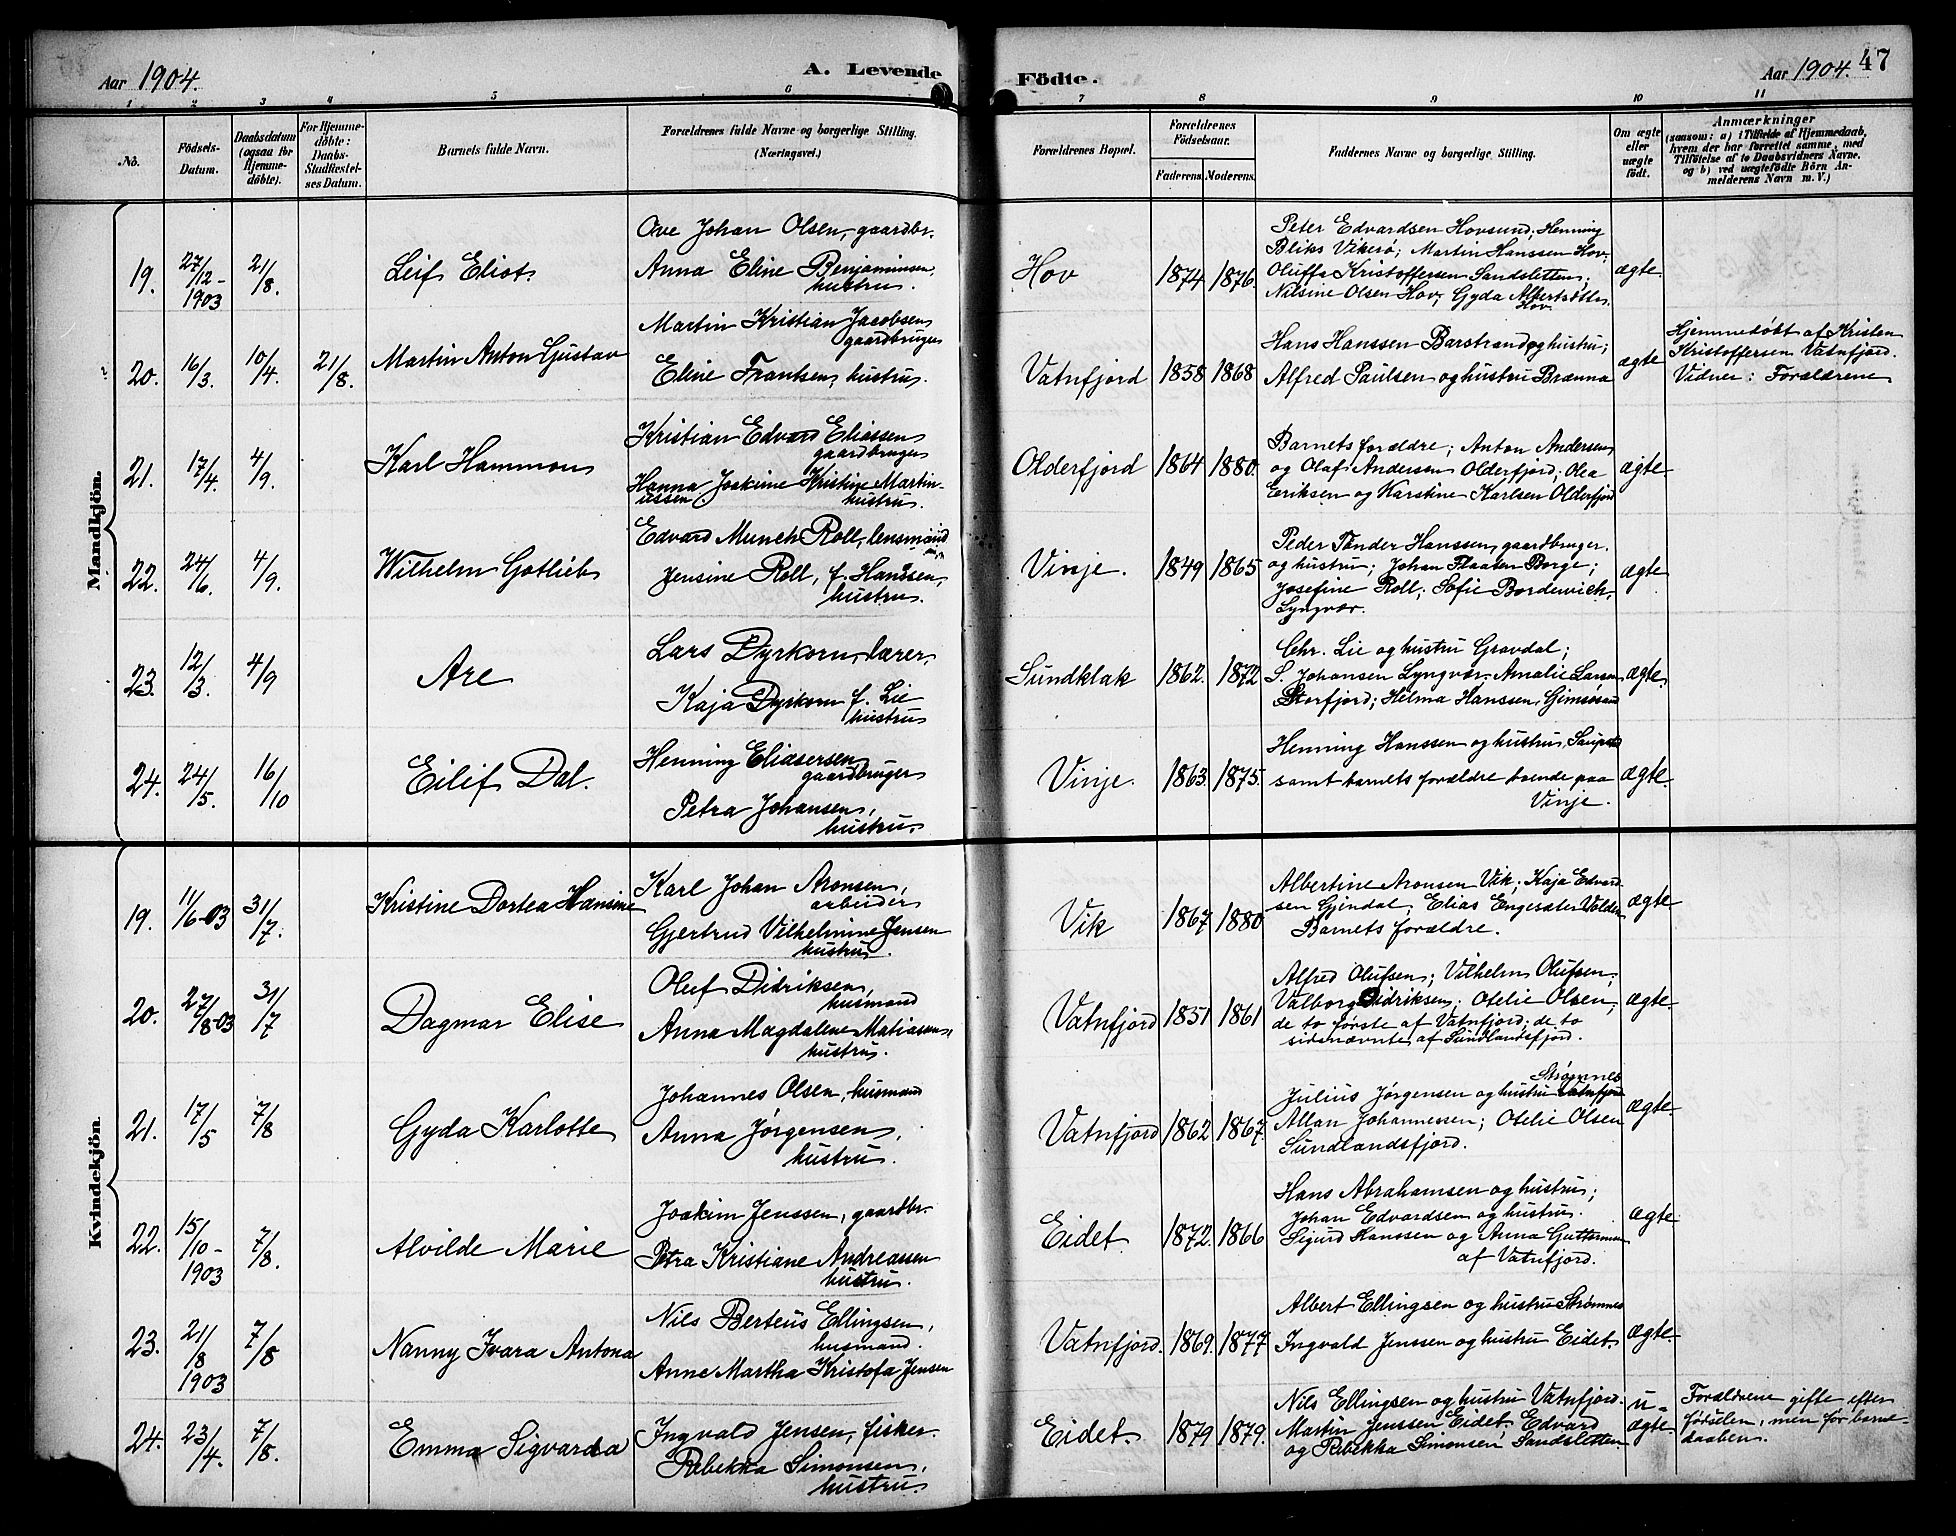 Aar 1904.
A. Levende Födte.
Aar 1904. 47
1 2 3 4 5 6 7 8 9 10 11
No.
Födsels-
Datum.
Daabsdatum
(ogsaa for
Hjemme-
döbte).
For Hjemme-
döbte:
Daabs-
Stadfæstel-
ses Datum.
Barnets fulde Navn.
Forældrenes fulde Navne og borgerlige Stilling.
(Næringsvei.)
Forældrenes Bopæl.
Forældrenes
Födselsaar.
Faderens. Moderens.
Faddernes Navne og borgerlige Stilling.
Om ægte
eller
uægte
födt.
Anmærkninger
(saasom: a) i Tilfælde af Hjemmedaab,
hvem der har forrettet samme, med
Tilföielse af to Daabsvidners Navne.
og b) ved uægtefödte Börn An-
melderens Navn m. V.)
Mandkjön.
19.
27/12-
1903
21/8.
Leif Eliot.
Ove Johan Olsen, gaardbr.
Anna Eline Benjaminsen,
hustru.
Hov
1874 1876.
Peter Edvardsen Hovsund; Henning
Bliks Vikerö; Martin Hanssen Hov;
Oluffa Kristoffersen Sandsletten;
Nilsine Olsen Hov; Gyda Albertsdtter
Hov.
ægte
20.
16/3.
10/4.
21/8.
Martin Anton Gustav
Martin Kristian Jacobsen
gaardbruger
Eline Frantsen, hustru.
Vatnfjord
1858 1868
Hans Hanssen Barstrand og hustru;
Alfred Paulsen og hustru Brenna
ægte
Hjemmedöbt af Kristen
Kristoffersen Vatnfjord.
Vidner: Forældrene
21.
17/4.
4/9.
Karl Hammon
Kristian Edvard Eliassen
gaardbruger
Hanna Joakime Kristine Martin-
ussen hustru.
Olderfjord
1864 1880.
Barnets forældre; Anton Andersen
og Olaf Andersen Olderfjord; Olea
Eriksen og Karstine Karlsen Olderfjord
ægte
22.
24/6.
4/9.
Wilhelm Gotlieb
Edvard Munch Roll, lensmand
Jensine Roll, f. Hanssen,
hustru.
Vinje.
1849 1865
Peder Tönder Hanssen, gaardbruger
og hustru; Johan Flaaten Borge;
Josefine Roll; Sofie Bordewich,
Lyngvær.
ægte
23.
12/3.
4/9
Are
Lars Dyrkorn, lærer,
Kaja Dyrkorn f. Lie
hustru
Sundklak
1862. 1872
Chr. Lie og hustru Gravdal;
S. Johansen Lyngvær; Amalie Larsen
Storfjord; Helma Hanssen, Gimsösand
ægte.
24.
24/5.
16/10
Eilif Dal.
Henning Eliasersen
gaardbruger
Petra Johansen,
hustru.
Vinje.
1863. 1875.
Henning Hanssen og hustru, Saupstad
samt barnets forældre boende paa
Vinje.
ægte.
Kvindekjön.
19.
11/6-03
31/7.
Kristine Dortea Hansine
Karl Johan Aronsen,
arbeider
Gjertrud Vilhelmine Jensen
hustru.
Vik
1867 1880
Albertine Aronsen Vik; Kaja Edvard
sen Gjendal; Elias Engesæter Volden
Barnets forældre.
ægte.
20.
27/8-03
31/7
Dagmar Elise
Oluf Didriksen,
husmand
Anna Magdalene Matiassen,
hustru.
Vatnfjord
1851 1861
Alfred Olufsen; Vilhelm Olufsen;
Valborg Didriksen; Otelie Olsen,
de to förste af Vatnfjord; de to
sidsnævnte af Sundlandsfjord.
ægte.
21.
17/5
7/8
Gyda Karlotte
Johannes Olsen, husmand
Anna Jörgensen,
hustru.
Vatnfjord
1862 1867.
Strömnes
Julius Jörgensen og hustru Vatnfjord
Allan Johannessen; Otelie Olsen
Sundlandsfjord.
ægte.
22.
15/10-
1903
7/8.
Alvilde Marie
Joakim Jenssen, gaardbr.
Petra Kristiane Andreassen
hustru.
Eidet.
1872. 1866
Hans Abrahamsen og hustru;
Johan Edvardsen og hustru.
Sigurd Hanssen og Anna Guttormsen
af Vatnfjord.
ægte
23.
21/8
1903
7/8
Nanny Ivara Antona
Nils Berteus Ellingsen,
husmand.
Anne Martha Kristofa Jensen
Vatnfjord.
1869. 1877
Albert Ellingsen og hustru Strömnes
Ingvald Jenssen og hustru Eidet.
ægte.
24.
23/4.
7/8.
Emma Sigvarda
Ingvald Jensen, fisker.
Rebekka Simonsen,
hustru.
Eidet.
1879 1879.
Nils Ellingsen og hustru Vatnfjord.
Martin Jenssen Eidet, Edvard
og Rebekka Simonsen Sandsletten
u-
ægte
Forældrene gifte efter
födselen, men för barne-
daaben.